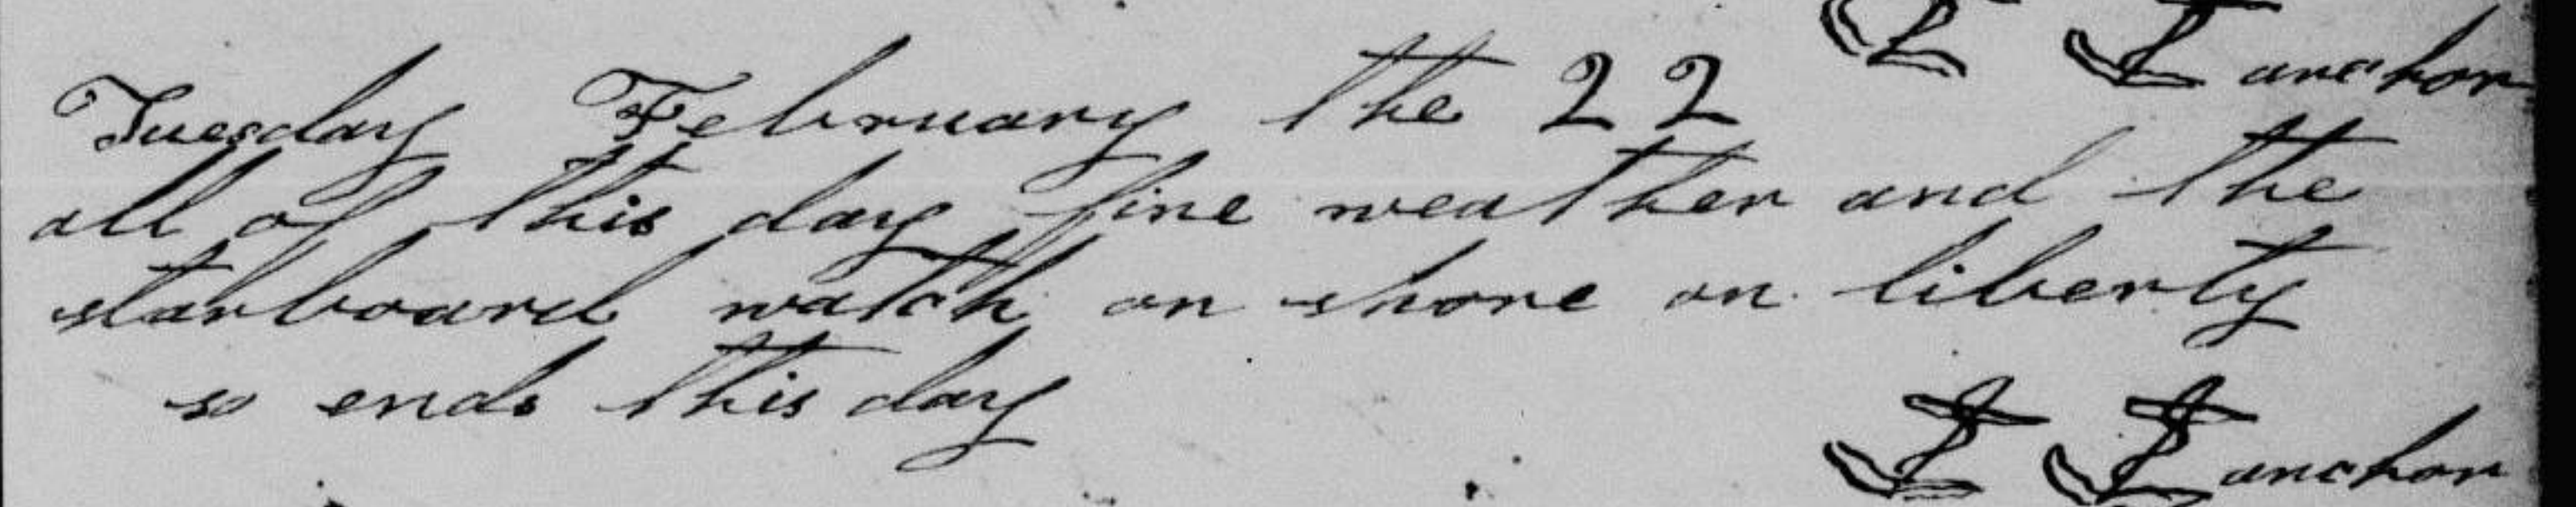 anchor
Tuesday February the 22
all of this day fine weather and the
starboard watch on shore on liberty
so ends this day
anchor